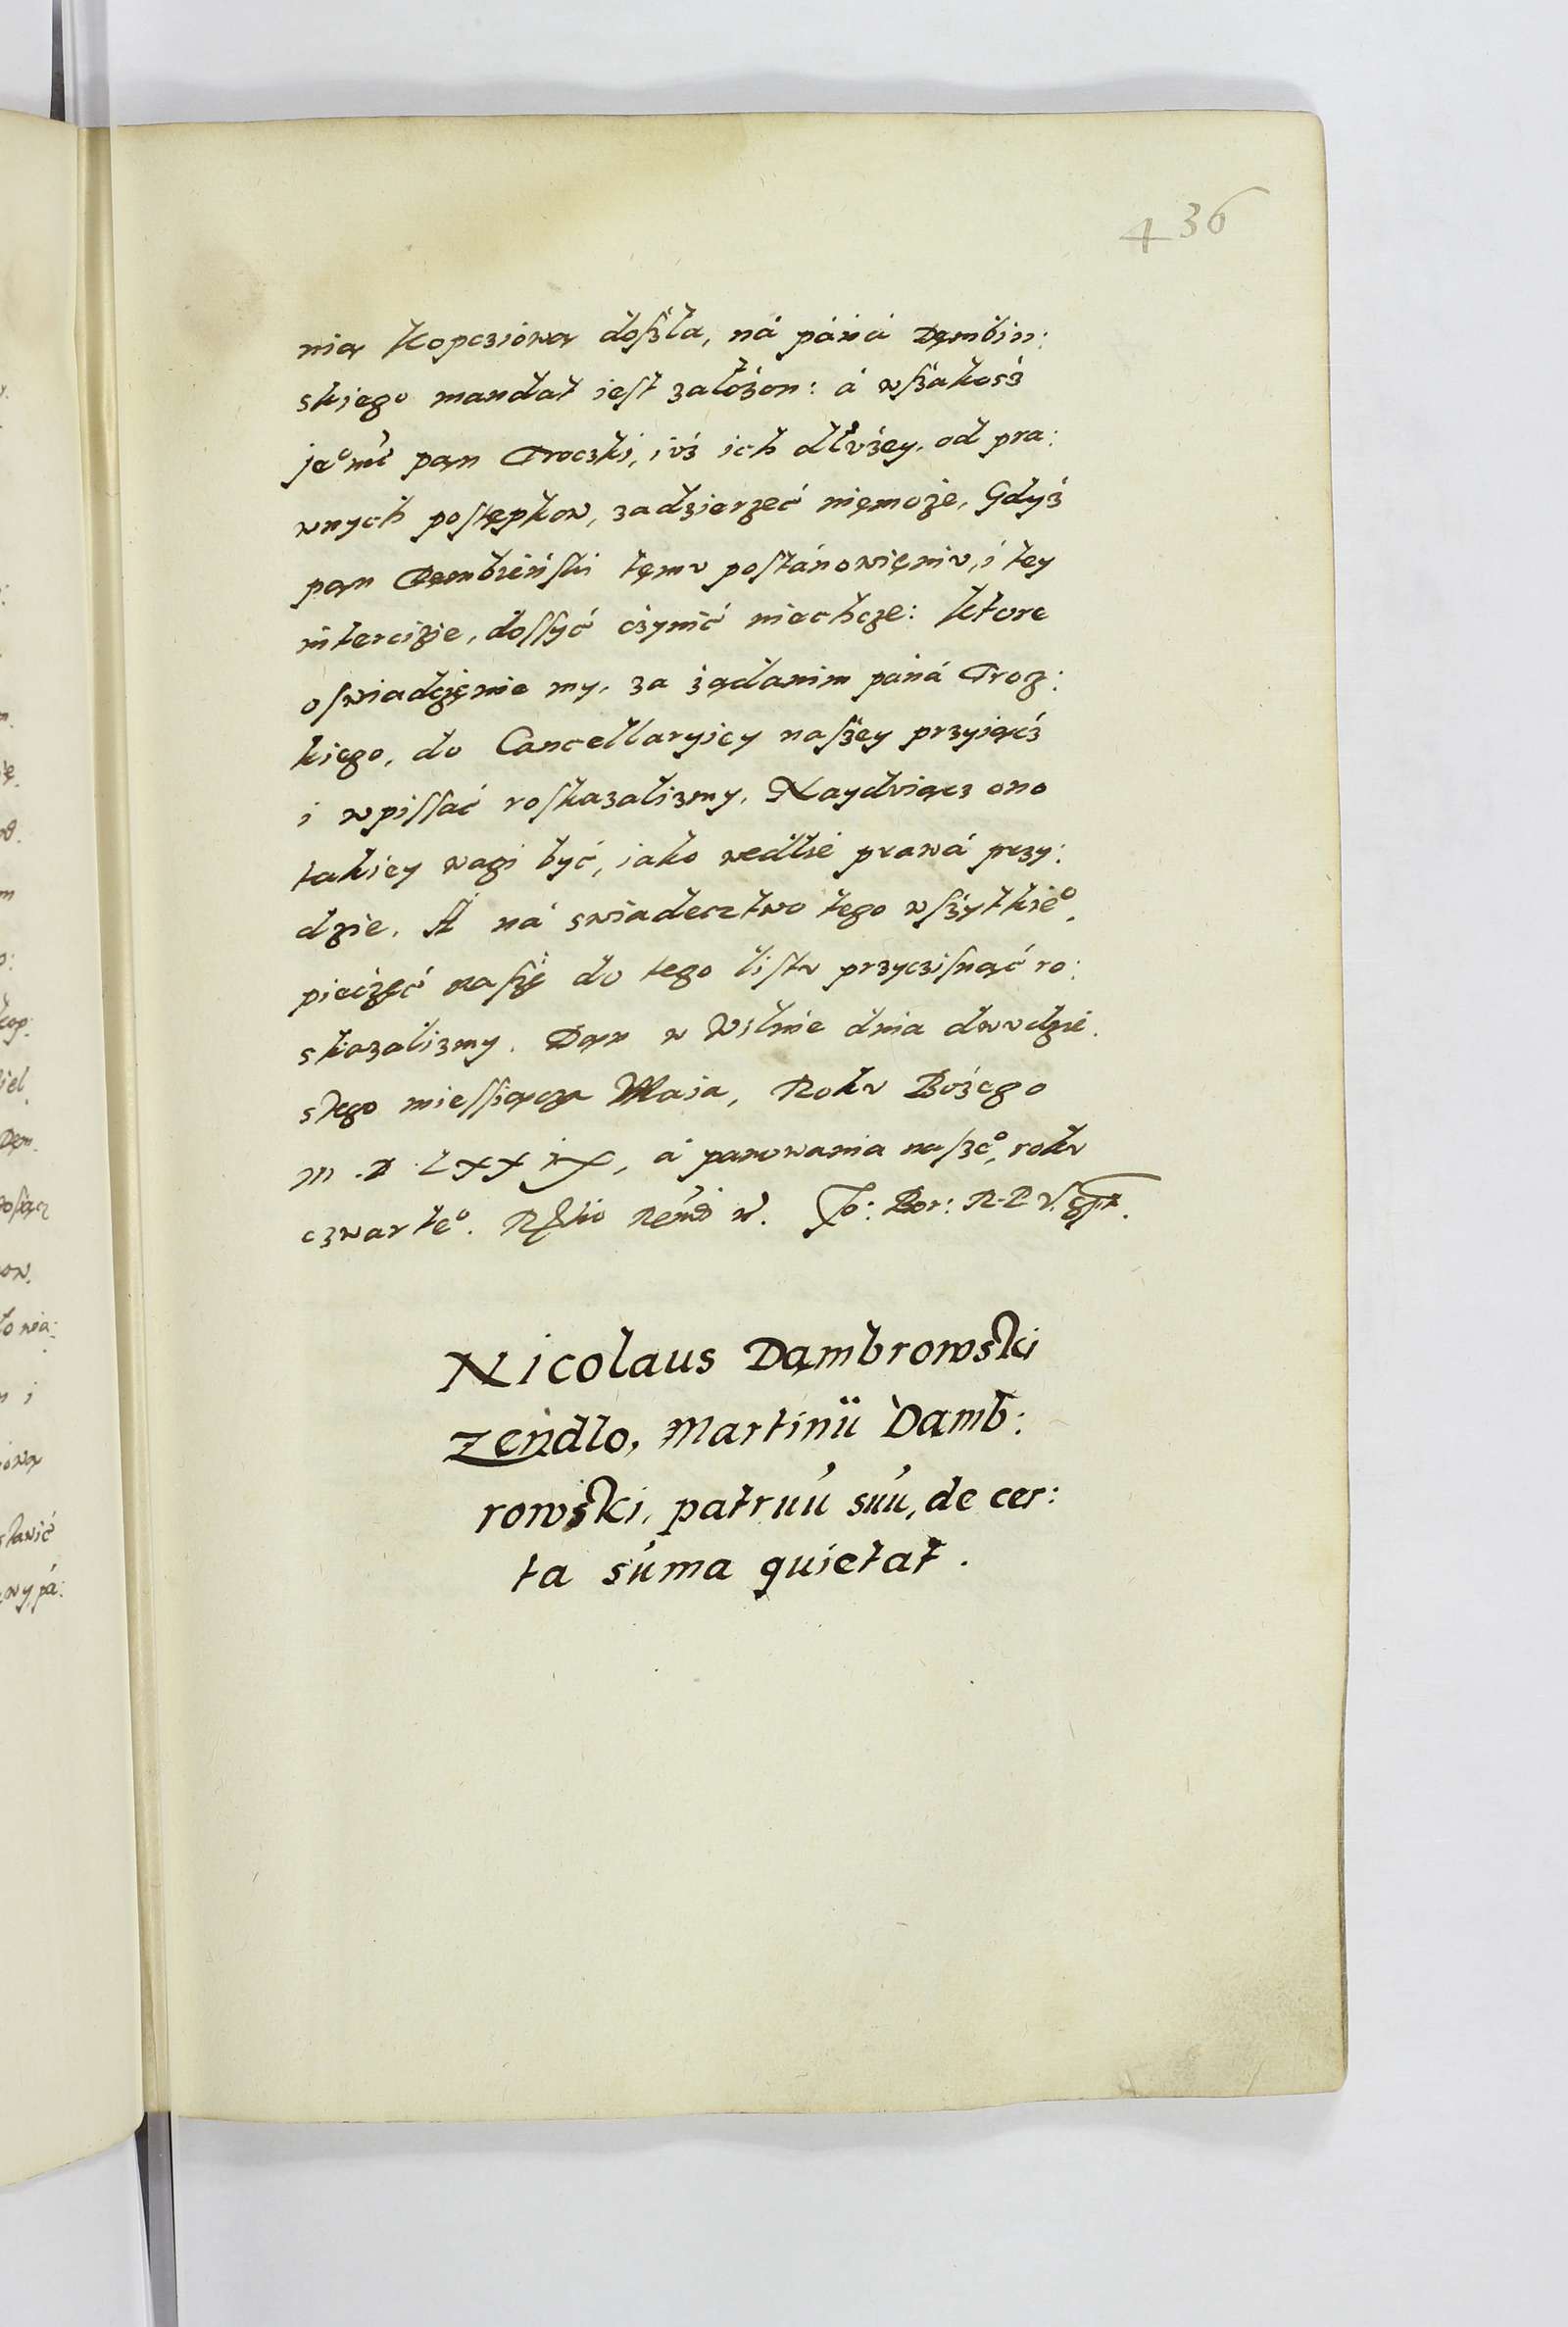 436
nią Kopcziową doszla, ná páná Dęmbin:
skiego mandat iest założon: á wszakosz
je° mć pan Troczki, iuż ich dłużey, od pra:
wnych postępkow, zadzierzeć niemoże, Gdyż
pan Dęmbieński tęmu postánowieniu, i tey
intercizie, dossyć czynić niechcze: ktore
oswiadczęnie my, za żądanim páná Trocz:
kiego, do Cancellaryiey naszey przyiącz
i wpissać roskazalizmy, Naydviącz ono
takiey wagi być, iako wedlie prawá przy:
dzie. A ná swiadecztwo tego wszytkie°,
pieczęć naszę do tego listu przyczisnąć ro:
skazalizmy. Dan w Wilnie dnia dwudzie.
stego miessiącza Maia, Roku Bożego
M.D.LXXIX, á panowania nasze°, roku
czwarte°. Jo: Bor: R.P.V.
Nicolaus Dąmbrowski
Zendlo, Martinii Damb:
rowski, patruu suu, de cer:
ta suma quietat.